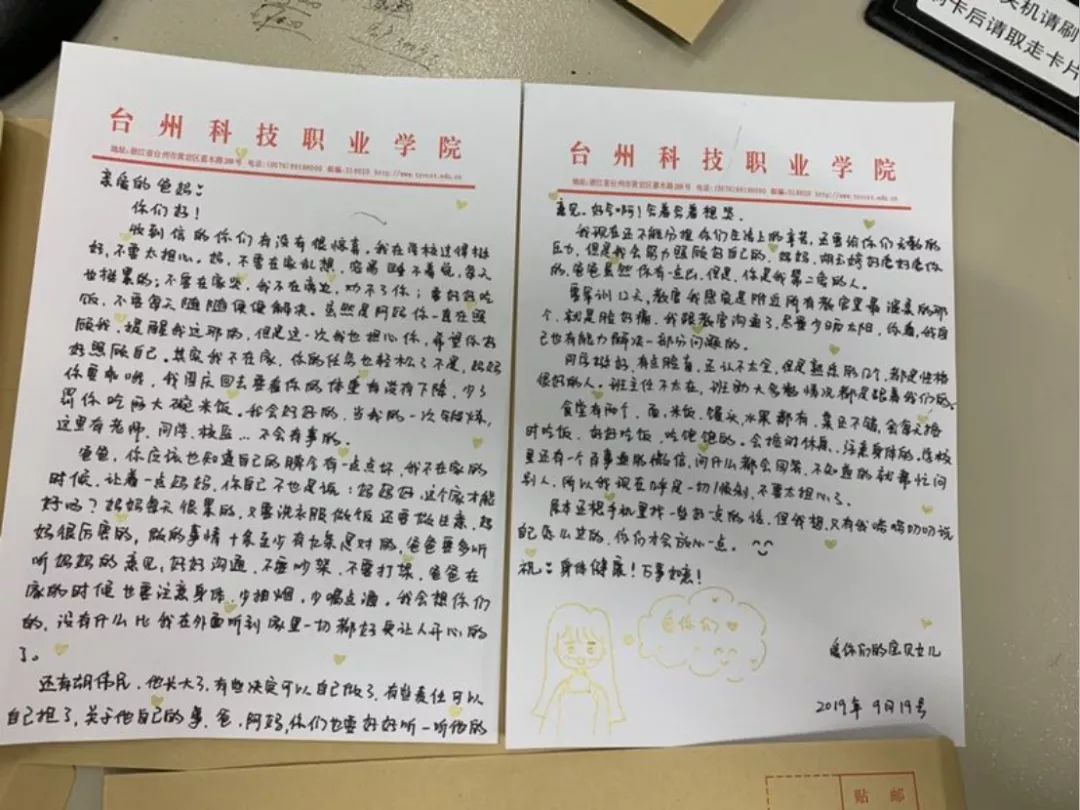 关机请刷
刷卡后请取走卡片
台州科技职业学院
地址:浙江省台州市黄岩区嘉木路288号 电话:(0576)89188000 邮编:318020 http://www.tzvcst.edu.cn
亲爱的爸妈:
你们好!
收到信的你们有没有很惊喜,我在学校过得挺
好,不要太担心。妈,不要在家乱想,容易睡不着觉,每天
也挺累的;不要在家哭,我不在旁边,劝不了你;要好好吃
饭,不要每天随随便便解决。虽然是阿妈你一直在照
顾我,提醒我这那的,但是这一次我也担心你,希望你好
好照顾自己。其实我不在家,你的任务也轻松了不是,妈妈
你要乖哦,我国庆回去要看你的体重有没有下降,少了
罚你吃两大碗米饭。我会好好的,当我的一次锻炼,
这里有老师、同学、校监...不会有事的。
爸爸,你应该也知道自己的脾气有一点点坏,我不在家的
时候,让着一点妈妈,你自己不也是说:妈妈好,这个家才能
好吗?妈妈每天很累的,又要洗衣服做饭还要做生意,妈
妈很厉害的,做的事情十条至少有九条是对的,爸爸要多听
听妈妈的意见,好好沟通,不要吵架,不要打架,爸爸在
家的时候也要注意身体,少抽烟,少喝点酒。我会想你们
的,没有什么比我在外面听到家里一切都好更让人开心的
了。
还有胡伟民,他长大了,有些决定可以自己做了,有些责任可以
自己担了,关于他自己的事,爸、阿妈,你们也要好好听一听他的
台州科技职业学院
地址:浙江省台州市黄岩区嘉木路288号 电话:(0576)89188000 邮编:318020 http://www.tzvcst.edu.cn
意见。好啰啊!写着写着想哭。
我现在还不能分担你们生活上的辛苦,还要给你们无数的
压力,但是我会努力照顾好自己的,妈妈,胡玉婷好爱好爱你
的,爸爸虽然你有一点凶,但是,你是我第二爱的人。
要军训12天,教官我感觉是附近所有教官里最温柔的那
个,就是脸好痛,我跟教官沟通了,尽量少晒太阳,你看,我自
己也有能力解决一部分问题的。
同学挺好,有点脸盲,还认不太全,但是熟悉的几个,都是性格
很好的人。班主任不太在,班助大多数情况都是跟着我们的。
食堂有两个,面、米饭、馒头、水果都有,菜还不错,会每天按
时吃饭,好好吃饭,吃饱饱的。会按时休息,注意身体的。学校
里还有一个百事通的微信,问什么都会回答,不知道的就帮忙问
别人,所以我现在好是一切顺利,不要太担心了。
原本还想手机里找一些好一点的话,但我想,只有我唠唠叨叨说
自己怎么过的,你们才会放心一点。
祝:身体健康!万事如意!
爱你们
爱你们的宝贝女儿
2019年9月19号
贴 邮